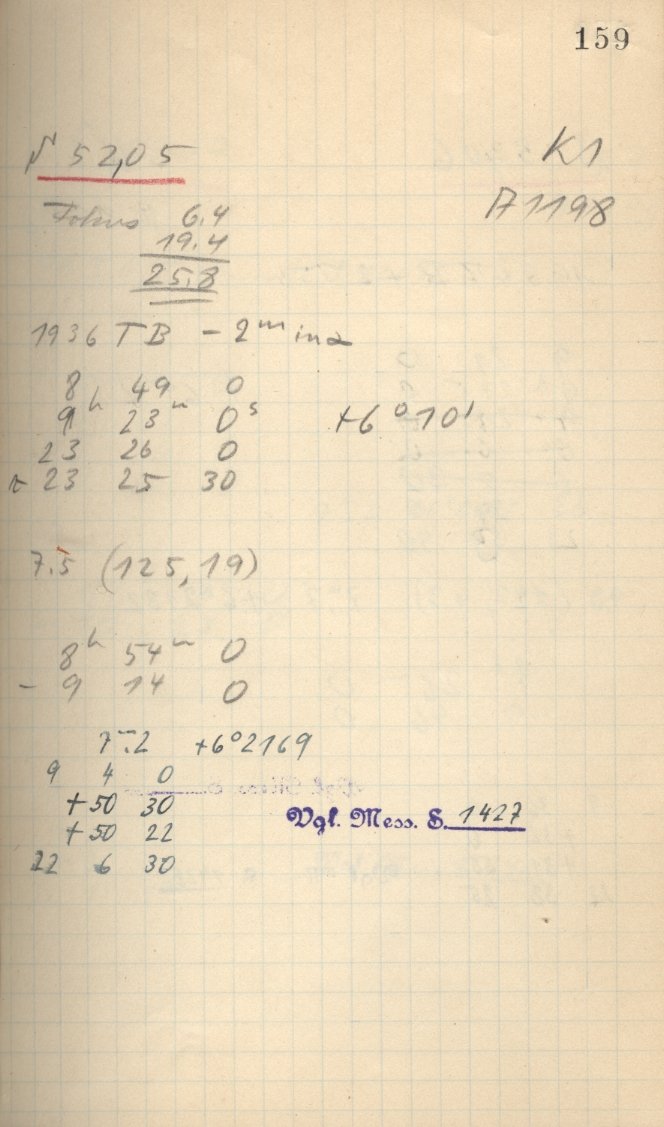 159
№ 5205
K1
A 1198
Fokus 6.4
19.4
25.8
1936 TB - 2ᵐ in α
8 49 0
9ʰ 23ᵐ 0ˢ +6° 10'
23 26 0
23 25 30
7.5 (125, 19)
8ʰ 54ᵐ 0
- 9 14 0
7ᵐ.2 +6°2169
9 4 0
+50 30
+50 22
22 6 30
Vgl. Mess. S. 1427